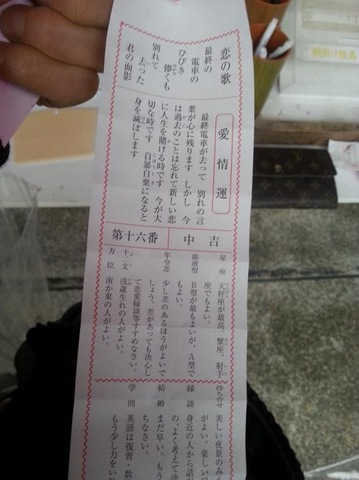 恋の歌
最終の
電車の
ひびき
儚くも
別れて
去った
君の面影
愛情運
最終電車が去って 別れの言
葉が心に残ります しかし 今
は過去のことは忘れて新しい恋
に人生を賭ける時です 今が大
切な時です 自暴自棄になると
身を滅ぼします
第十六番
中吉
星座 天秤座が最高、蟹座、射手
座でもよい。
血液型 B型が最もよいが、A型で
もよい。
年令差 少し差のあるほうがよいで
しょう。差があっても決心し
て恋愛縁談等すすめなさい。
十二支 戌歳生れの人がよい。
方位 南か東の人がよい。
待ち合せ 美しい夜景のみ
がよい。楽しい
縁談 身近の人から話
の、よく考えて決
結婚 まだ早い。もう
ちなさい。
学問 英語は復習・数
もう少し力をい